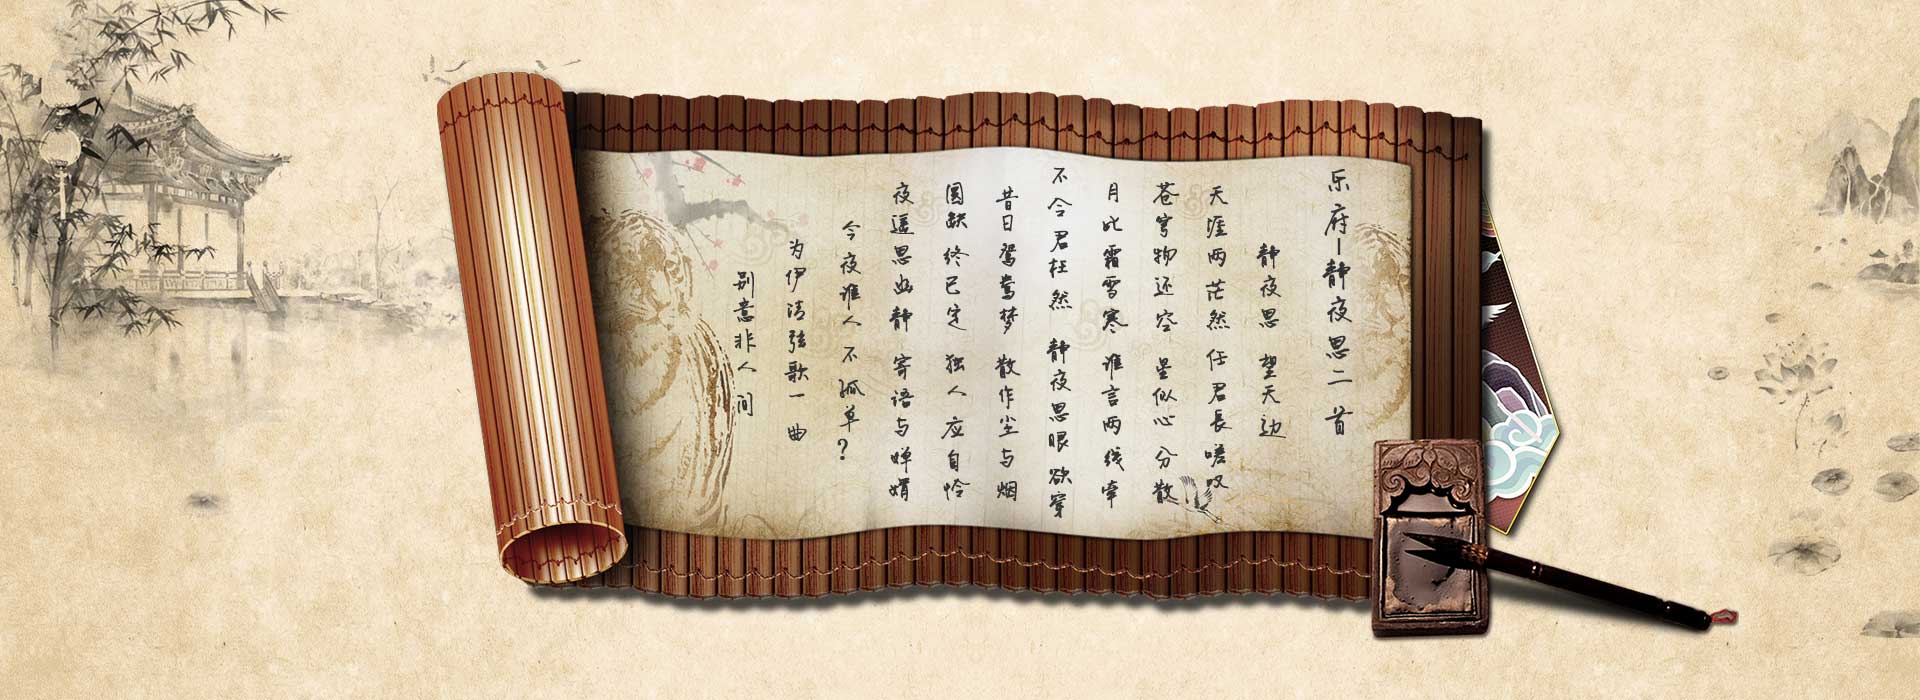 乐府—静夜思二首
静夜思 望天边
天涯两茫然 任君長嗟叹
苍穹物还空 星似心分散
月比霜雪寒 谁言两线牵
不令君枉然 静夜思眼欲穿
昔日鸳鸯梦 散作尘与烟
圆缺终已定 独人应自怜
夜遥思如静 寄语与婵娟
今夜谁人不孤单？
为伊清弦歌一曲
别意非人间